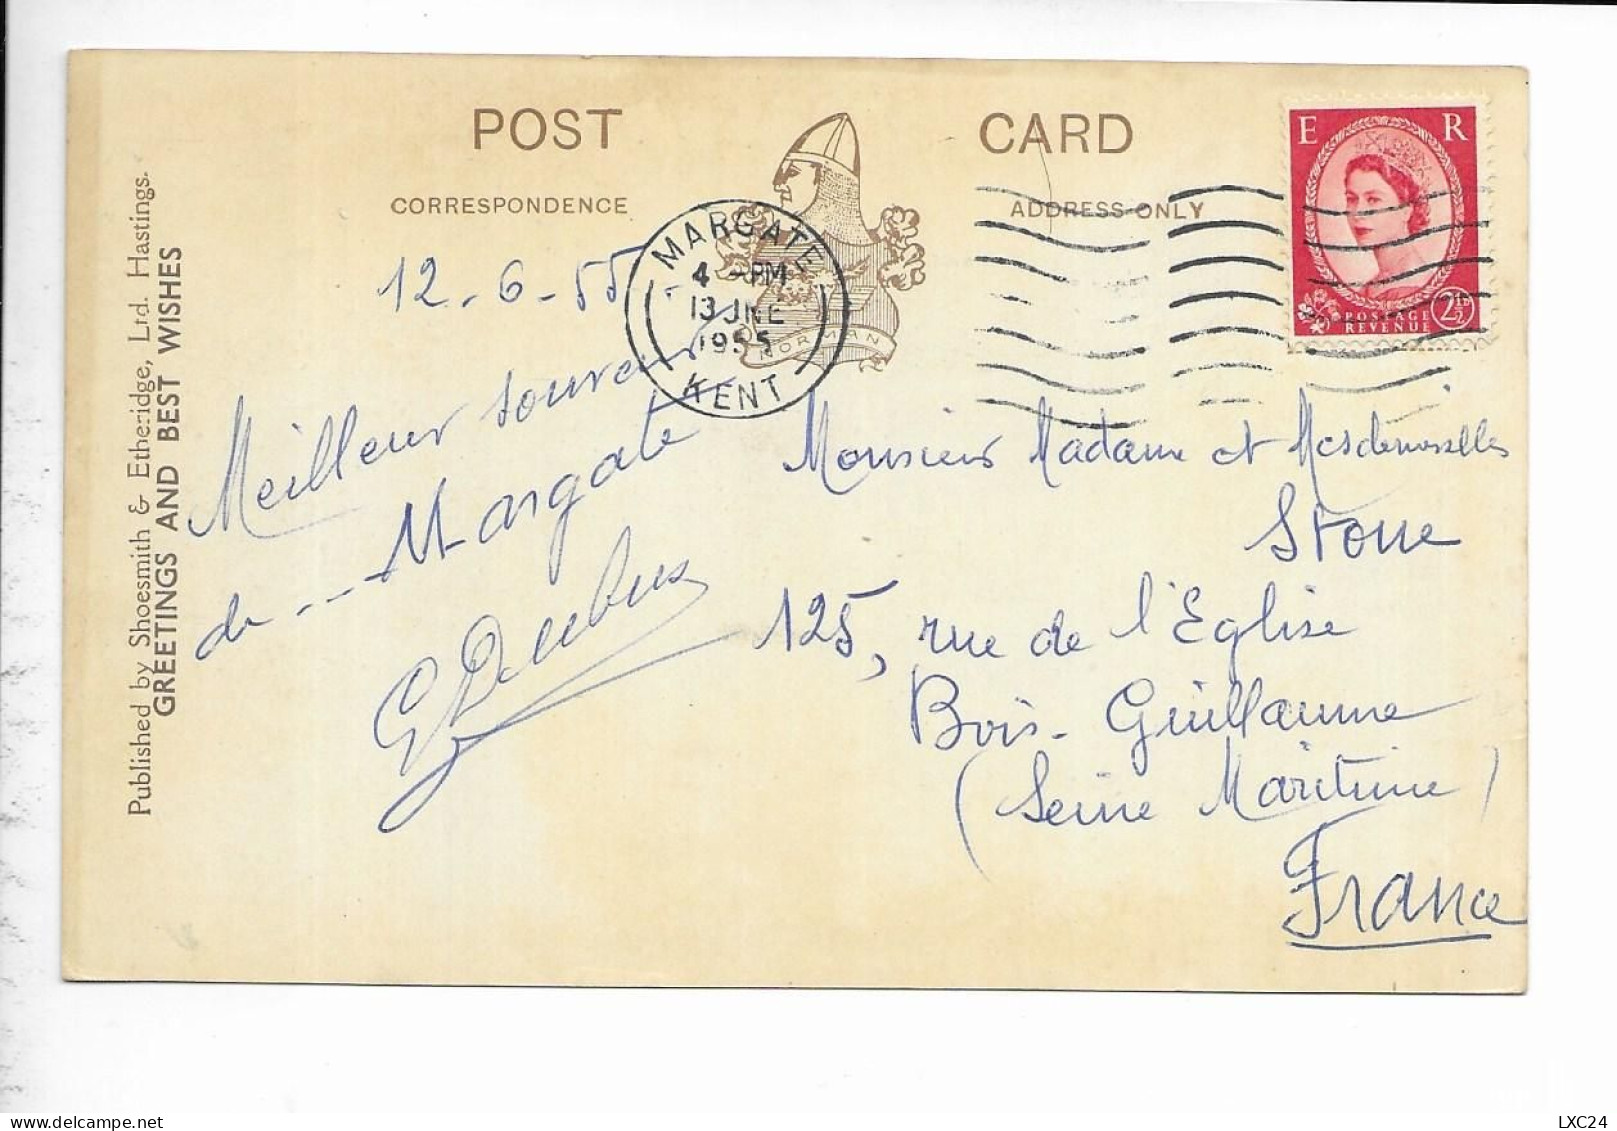 POST CARD
CORRESPONDENCE
ADDRESS ONLY
E R
POSTAGE
REVENUE
2½
MARGATE
4 - PM
13 JNE
1955
KENT
NORMAN
Published by Shoesmith & Etheridge, Ltd. Hastings.
GREETINGS AND BEST WISHES
12-6-55
Meilleur souvenir
de --- Margate
Monsieur Madame et Mesdemoiselles
125, rue de l'Eglise
Bois-Guillaume
(Seine Maritime)
France
LXC24